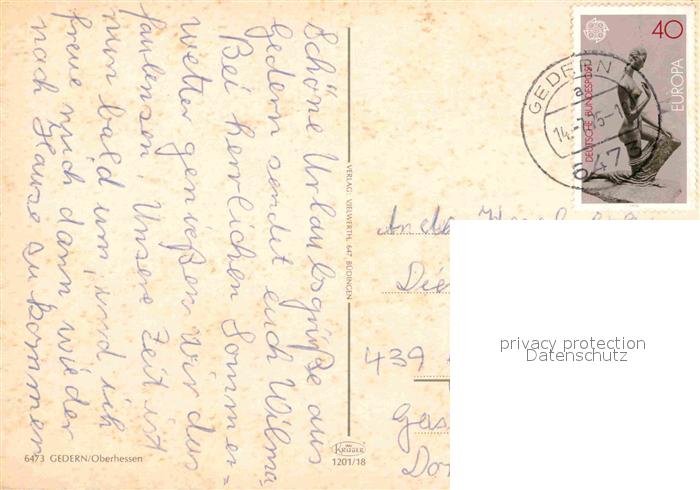 Schöne Urlaubsgrüße aus
Gedern sendet euch Wilma.
Bei herrlichen Sommer=
wetter genießen wir das
faulensen. Unsere Zeit ist
nun bald um, und ich
freue mich dann wieder
nach Hause zu kommen
6473 GEDERN/Oberhessen
VERLAG VIEWERTH, 647 BÜDINGEN
KRÜGER
1201/18
40
EUROPA
DEUTSCHE BUNDESPOST
GEDERN
a
6473
439
privacy protection
Datenschutz